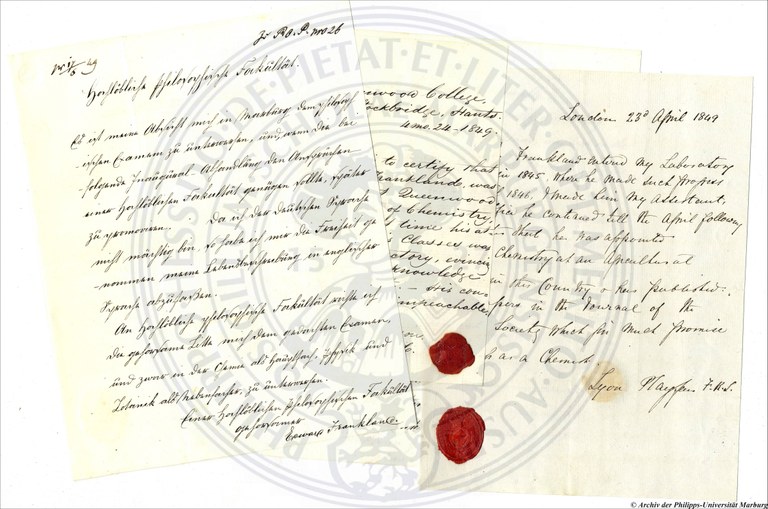 Hochlöbliche philosophische Fakultät.
Es ist meine Absicht mich in Marburg dem philosoph-
ischen Examen zu unterwerfen, und, wenn die bei-
folgende Inaugural-Abhandlung den Ansprüchen
einer Hochlöblichen Fakultät genügen sollte, später
zu promoviren. Da ich der Deutschen Sprache
nicht mächtig bin, so habe ich mir die Freiheit ge-
nommen meine Lebensbeschreibung in englischer
Sprache abzufassen.
An Hochlöbliche philosophische Fakultät richte ich
die gehorsame Bitte mich dem gedachten Examen,
und zwar in der Chemie als Hauptfach, Physik und
Botanik als Nebenfächer, zu unterwerfen.
Einer Hochlöblichen philosophischen Fakultät
gehorsamer
Edward Frankland
nwood College,
ockbridge, Hants.
4 mo. 24 - 1849.
to certify that
Frankland, was
t Queenwood
of Chemistry
time his
Classes was
ctory, evinc
knowledge
cons
impeachable
London 23d April 1849
Frankland entered my Laboratory
in 1845. Where he made such progress
1846, I made him my Assistant,
he continued till the April following
that he was appointed
Chemistry at an Agricultural
in this Country & has published
pers in the Journal of the
Society which give much promise
as a Chemist.
Lyon Playfair F.R.S.
PIETAT·ET·LITER
© Archiv der Philipps-Universität Marburg